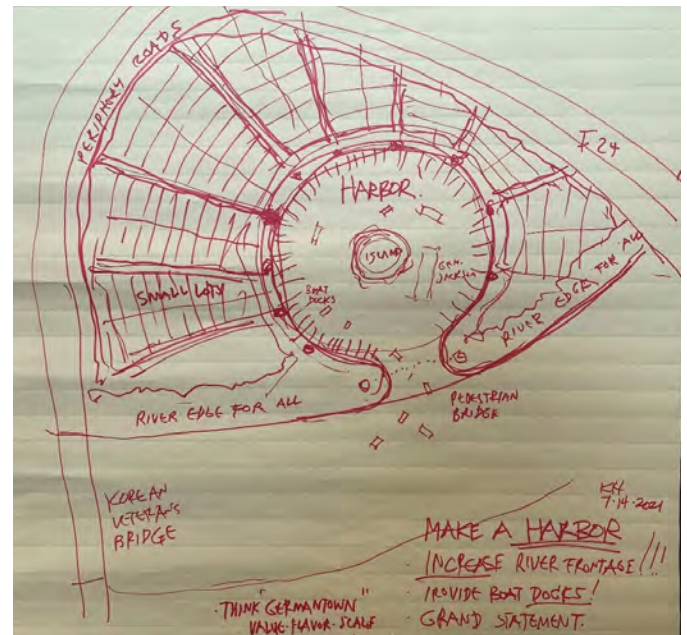 PERIPHERY ROADS
I-24
HARBOR.
ISLAND
GEN.
JACKSON
BOAT
DOCKS
SMALL LOTS
RIVER EDGE FOR ALL
RIVER EDGE FOR ALL
PEDESTRIAN
BRIDGE
KOREAN
VETERANS
BRIDGE
KH
7·14·2021
MAKE A HARBOR
· INCREASE RIVER FRONTAGE!!!
· PROVIDE BOAT DOCKS!
· GRAND STATEMENT.
"THINK GERMANTOWN"
VALUE·FLAVOR·SCALE